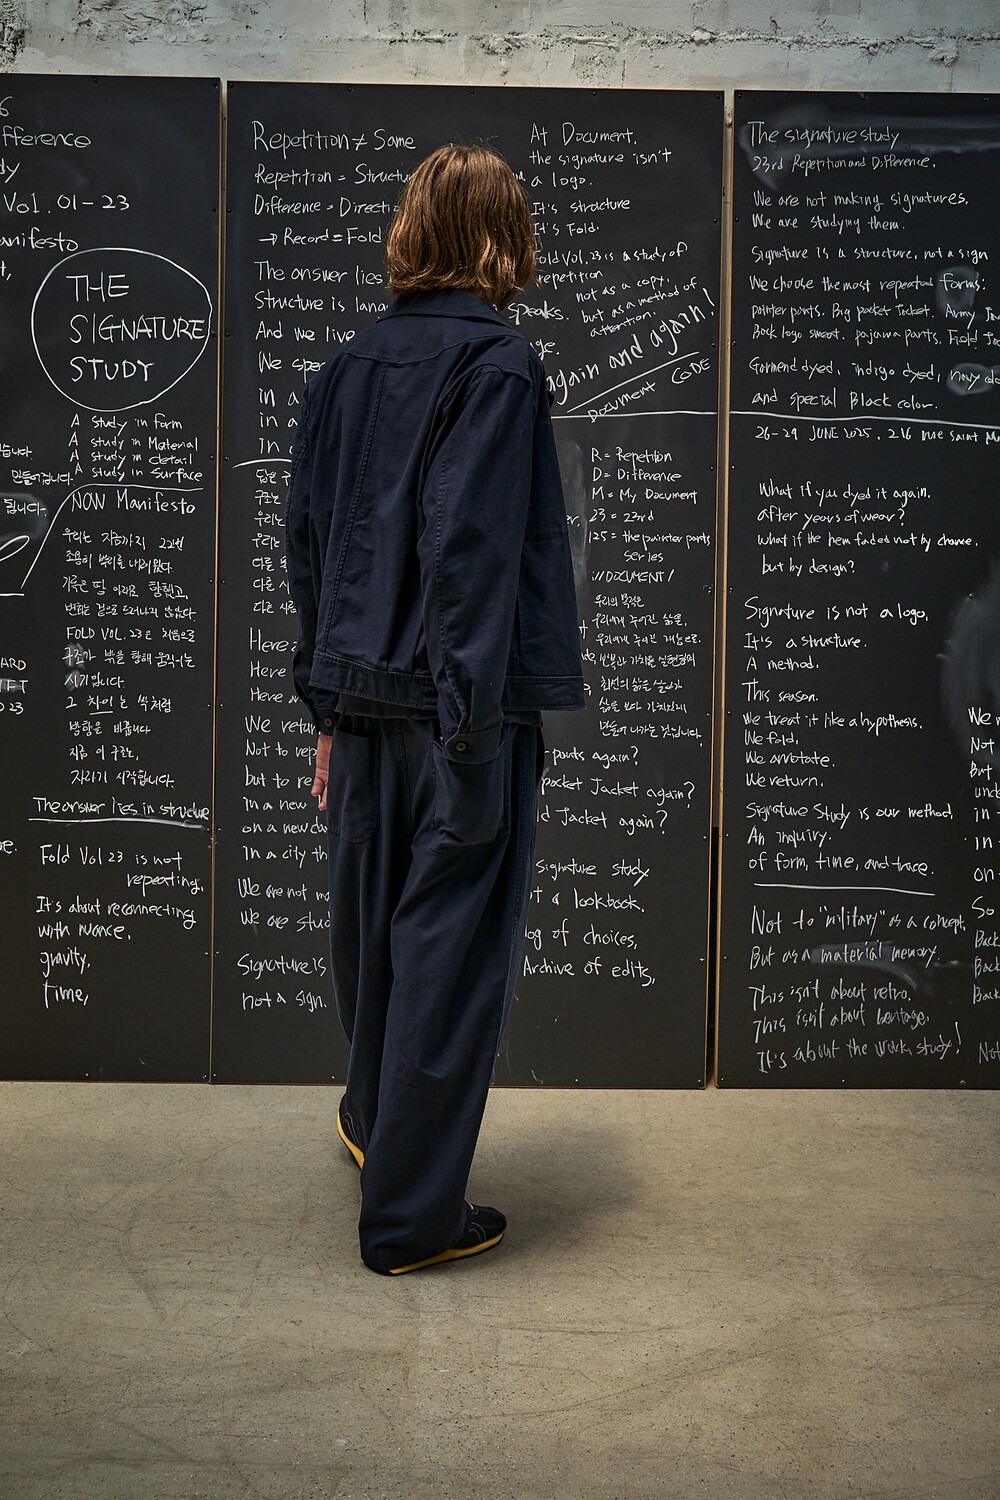 6
fference
dy
Vol. 01-23
anifesto
t,
THE
SIGNATURE
STUDY
A study in Form
A study in Material
A study in detail
A study in Surface
습니다.
만들어갑니다.
됩니다.
NOW Manifesto
우리는 지금까지 22번
조용히 변화를 내어왔다.
기록은 땀 아래로 향했고,
변화는 겉으로 드러나지 않았다.
FOLD VOL. 23은 처음으로
구조가 밖을 향해 움직이는
시기입니다.
그 차이는 싹처럼
방향을 바꿉니다
지금 이 구조는,
자라기 시작합니다.
ARD
23
The answer lies in structure
e.
Fold Vol 23 is not
repeating.
It's about reconnecting
with nuance,
gravity,
time,
Repetition ≠ Same
Repetition = Structur
Difference = Directi
→ Record = Fold
The answer lies
Structure is lang
And we live
We spe
in a
in a
In a
답은 구
구조는
우리는
우리는
다른
다른 시
다른 사람
Here
Here
Here
We retur
Not to rep
but to re
in a new
on a new
in a city th
We are not ma
We are stud
Signature is
not a sign.
At Document,
the signature isn't
a logo.
It's structure
It's Fold.
Fold Vol. 23 is a study of
repetition
not as a copy,
but as a method of
attention.
speaks.
ge.
again and again!
Document CODE
R = Repetition
D = Difference
M = My Document
23 = 23rd
125 = the painter pants
series
://DOCUMENT/
우리의 목적은
우리에게 주어진 삶을,
우리에게 주어진 재능으로,
최선의 삶을 살아가
삶을 보다 가치있게
만들어 나가는 것입니다.
pants again?
pocket Jacket again?
d Jacket again?
signature study
t a lookbook.
log of choices,
Archive of edits,
The signature study
23rd Repetition and Difference.
We are not making signatures.
We are studying them.
Signature is a structure, not a sign
We choose the most repeated forms:
painter pants. Big pocket Jacket. Army Ja
Back logo sweat. pajama pants. Field Ja
Garment dyed, indigo dyed, navy de
and special Black color.
26-29 JUNE 2025. 216 rue Saint Ma
What if you dyed it again.
after years of wear?
what if the hem faded not by chance.
but by design?
Signature is not a logo,
It's a structure.
A method.
This season.
We treat it like a hypothesis.
We fold,
We annotate.
We return.
Signature Study is our method.
An inquiry.
of form, time, and trace.
Not to "military" as a concept,
But as a material memory.
This isn't about retro.
This isn't about heritage.
It's about the work study!
We
Not
But
und
in
in
on
So
Back
Back
Back
Not